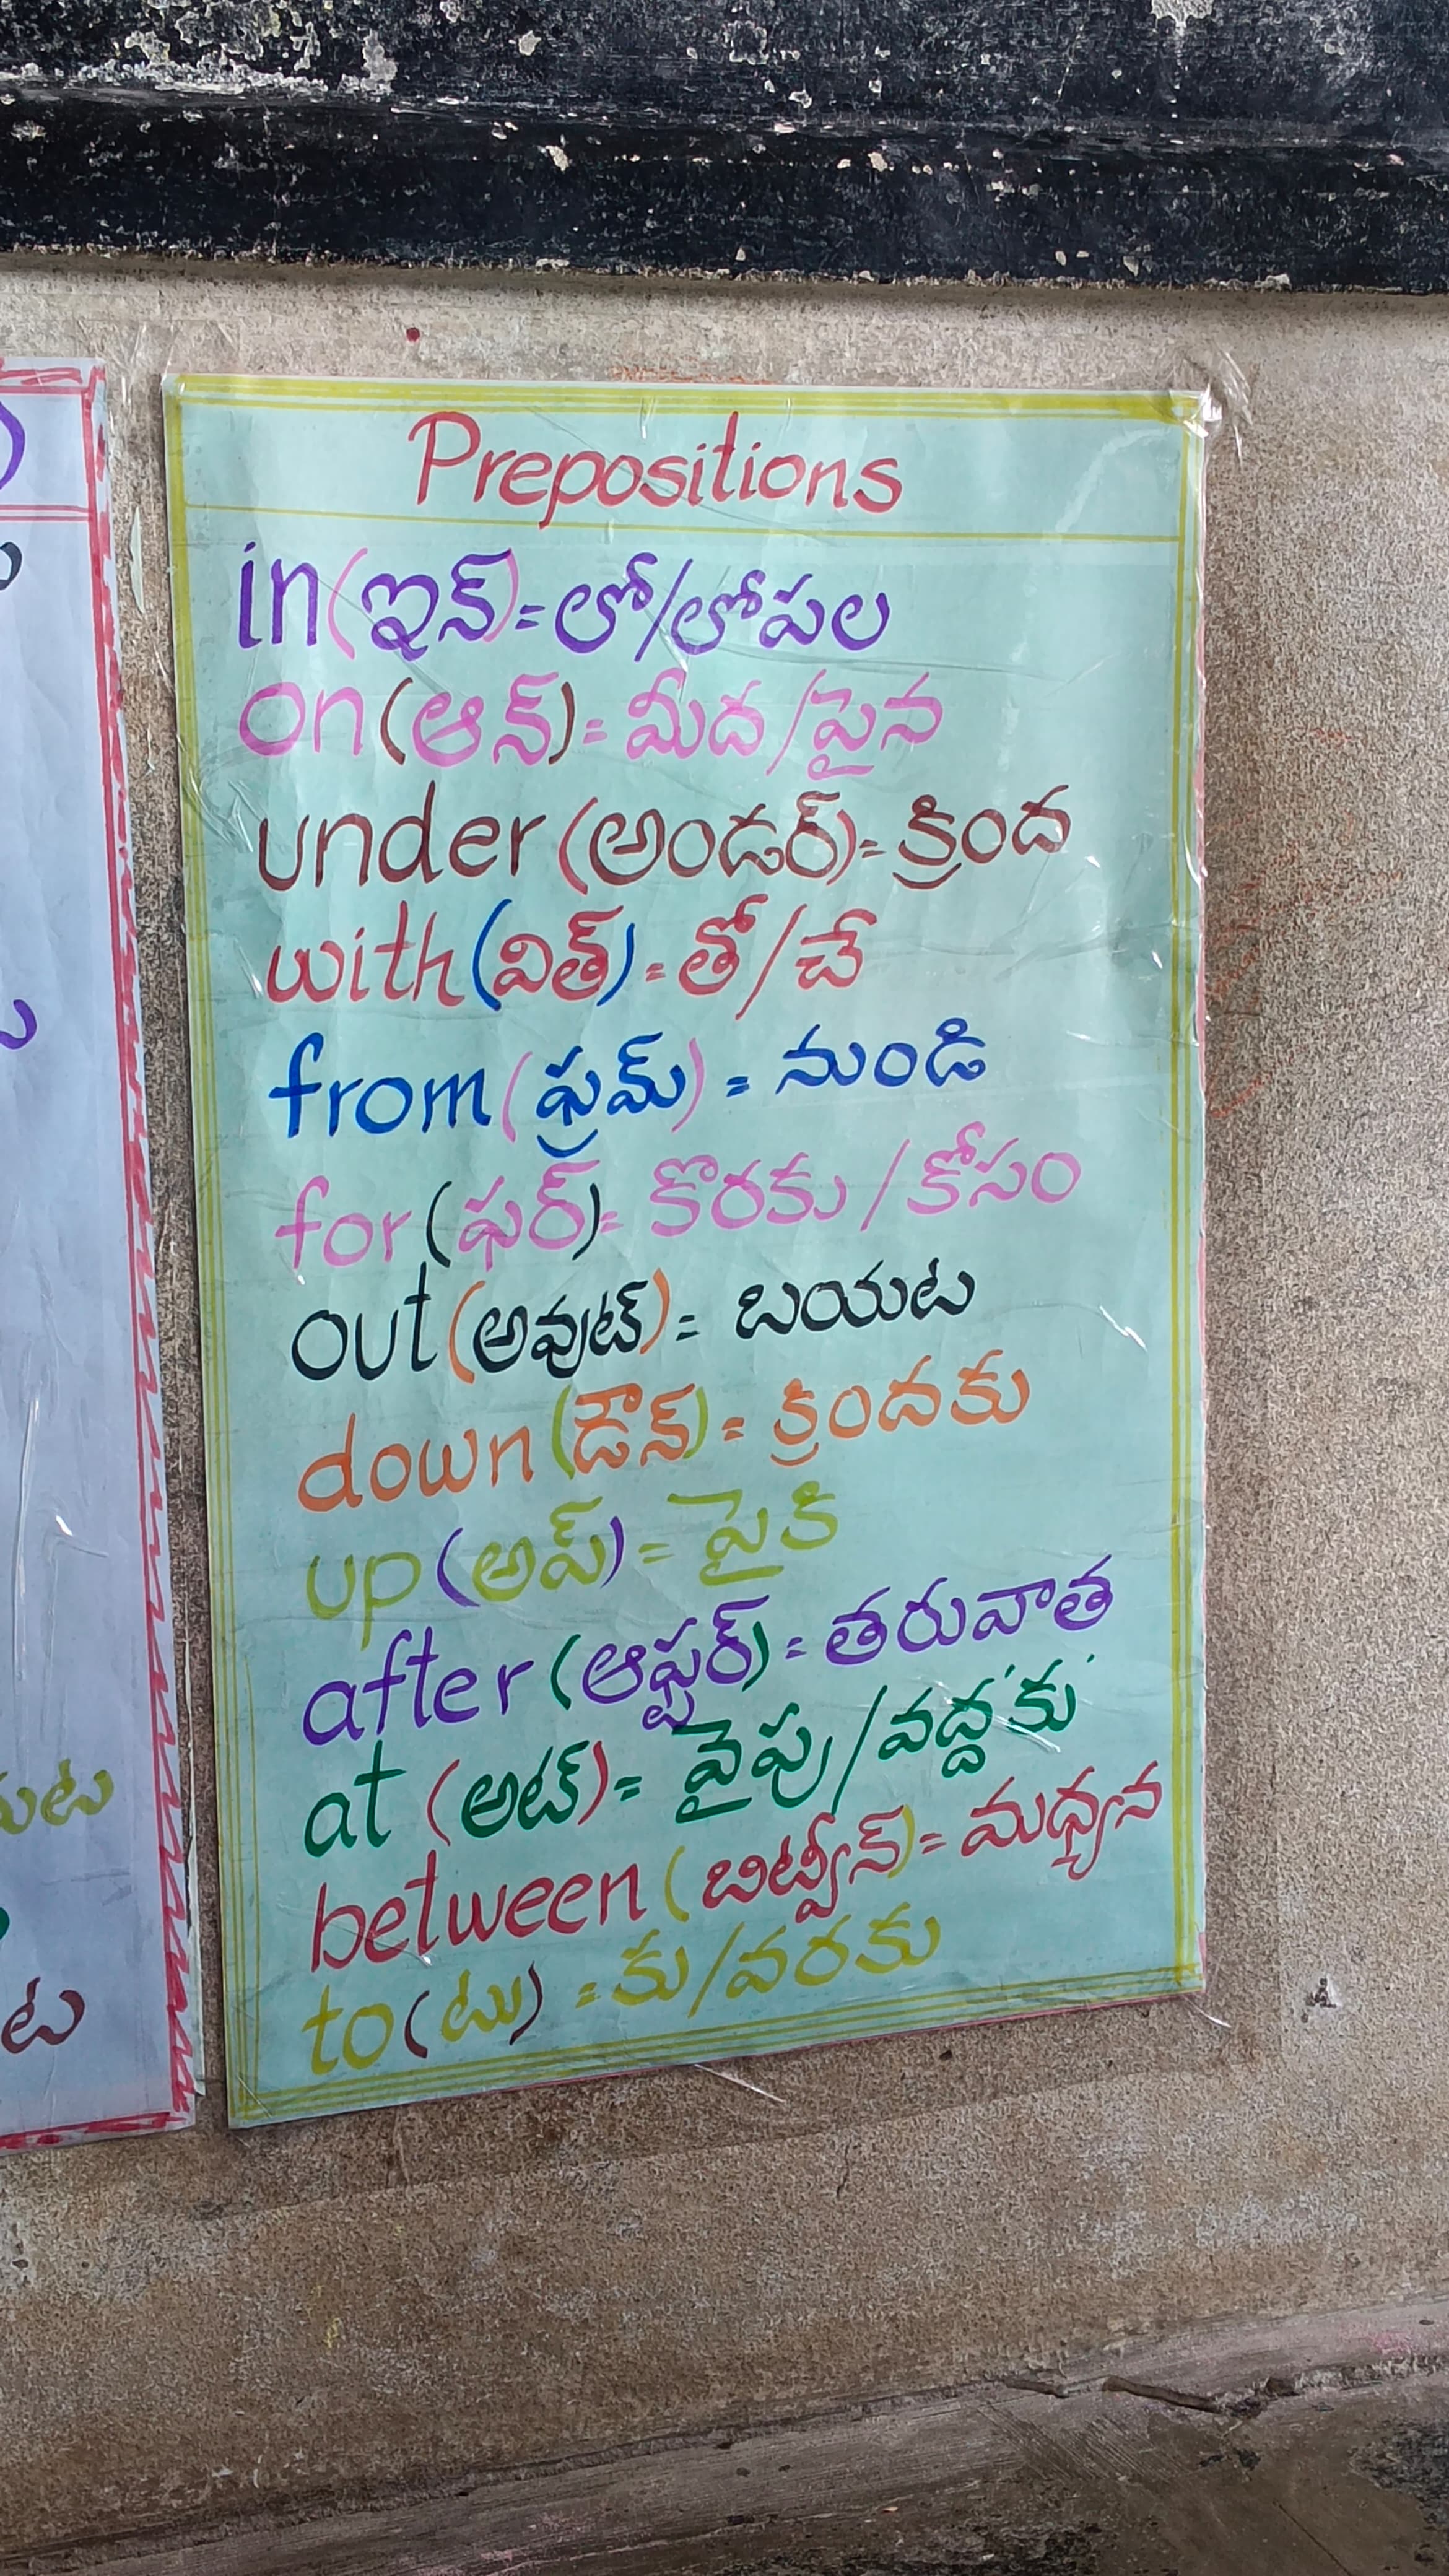 Prepositions
in(ఇన్)=లో/లోపల
on(ఆన్)=మీద/పైన
under(అండర్)=క్రింద
with(విత్)=తో/చే
from(ఫ్రమ్)=నుండి
for(ఫర్)=కొరకు/కోసం
out(అవుట్)=బయట
down(డౌన్)=క్రిందకు
up(అప్)=పైకి
after(ఆఫ్టర్)=తరువాత
at(అట్)=వైపు/వద్ద'కు'
between(బిట్వీన్)=మధ్యన
to(టు)=కు/వరకు